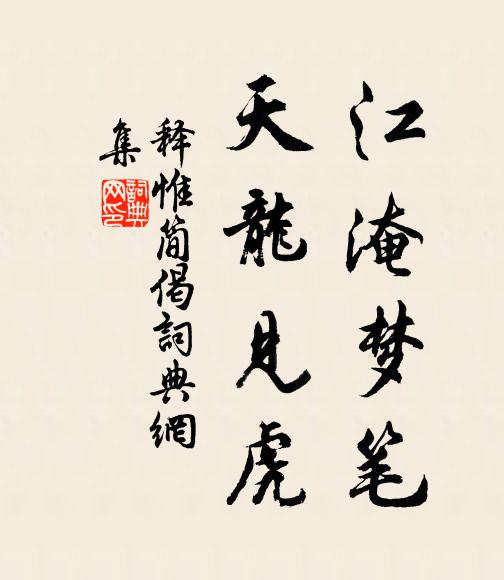 江淹梦笔
天龍见虎
释惟简偈詞典網
集
詞典
网印